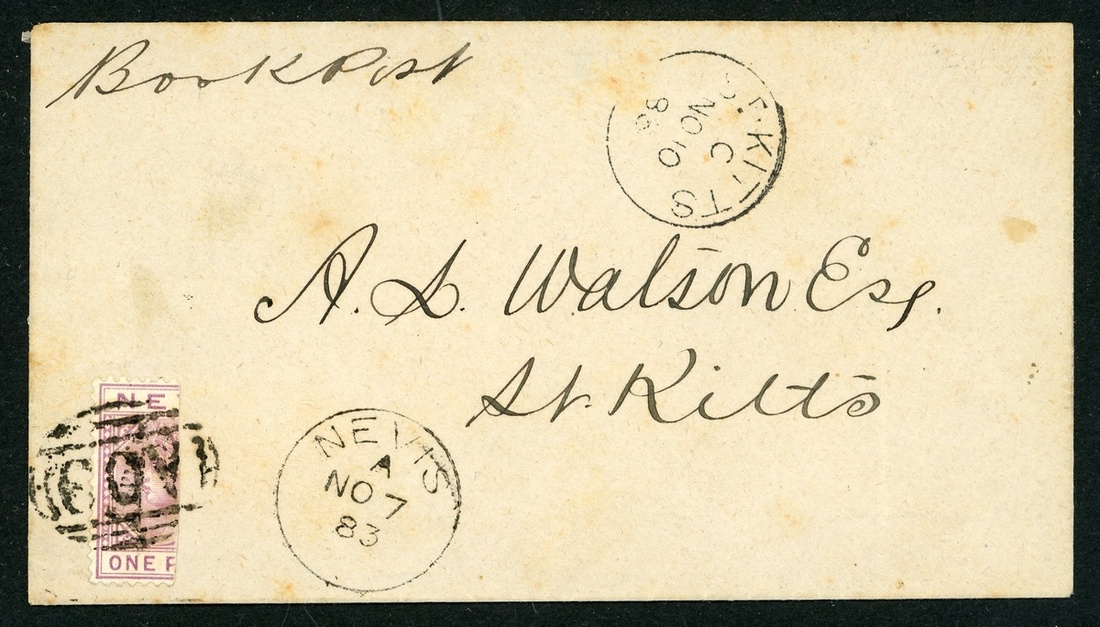 Book Post
ST. KITTS
C
NO 10
A. D. Watson Esq.
St. Kitts
NE
A09
ONE P
NEVIS
A
NO 7
83